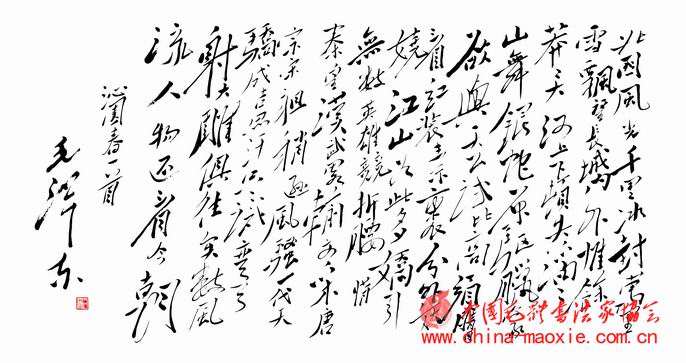 北国风光千里冰封萬里
雪飄望長城内外惟餘
莽莽大河上下頓失滔滔
山舞銀蛇原驰蜡象
欲與天公試比高須晴日
看红装素裹分外妖
娆江山如此多嬌引
無數英雄競折腰惜
秦皇漢武略输文采唐
宗宋祖稍逊風骚一代天
驕成吉思汗只识彎弓
射大雕俱往矣數風
流人物还看今朝
沁園春一首
毛泽东
中国毛体書法家协会
www.china-maoxie.com.cn